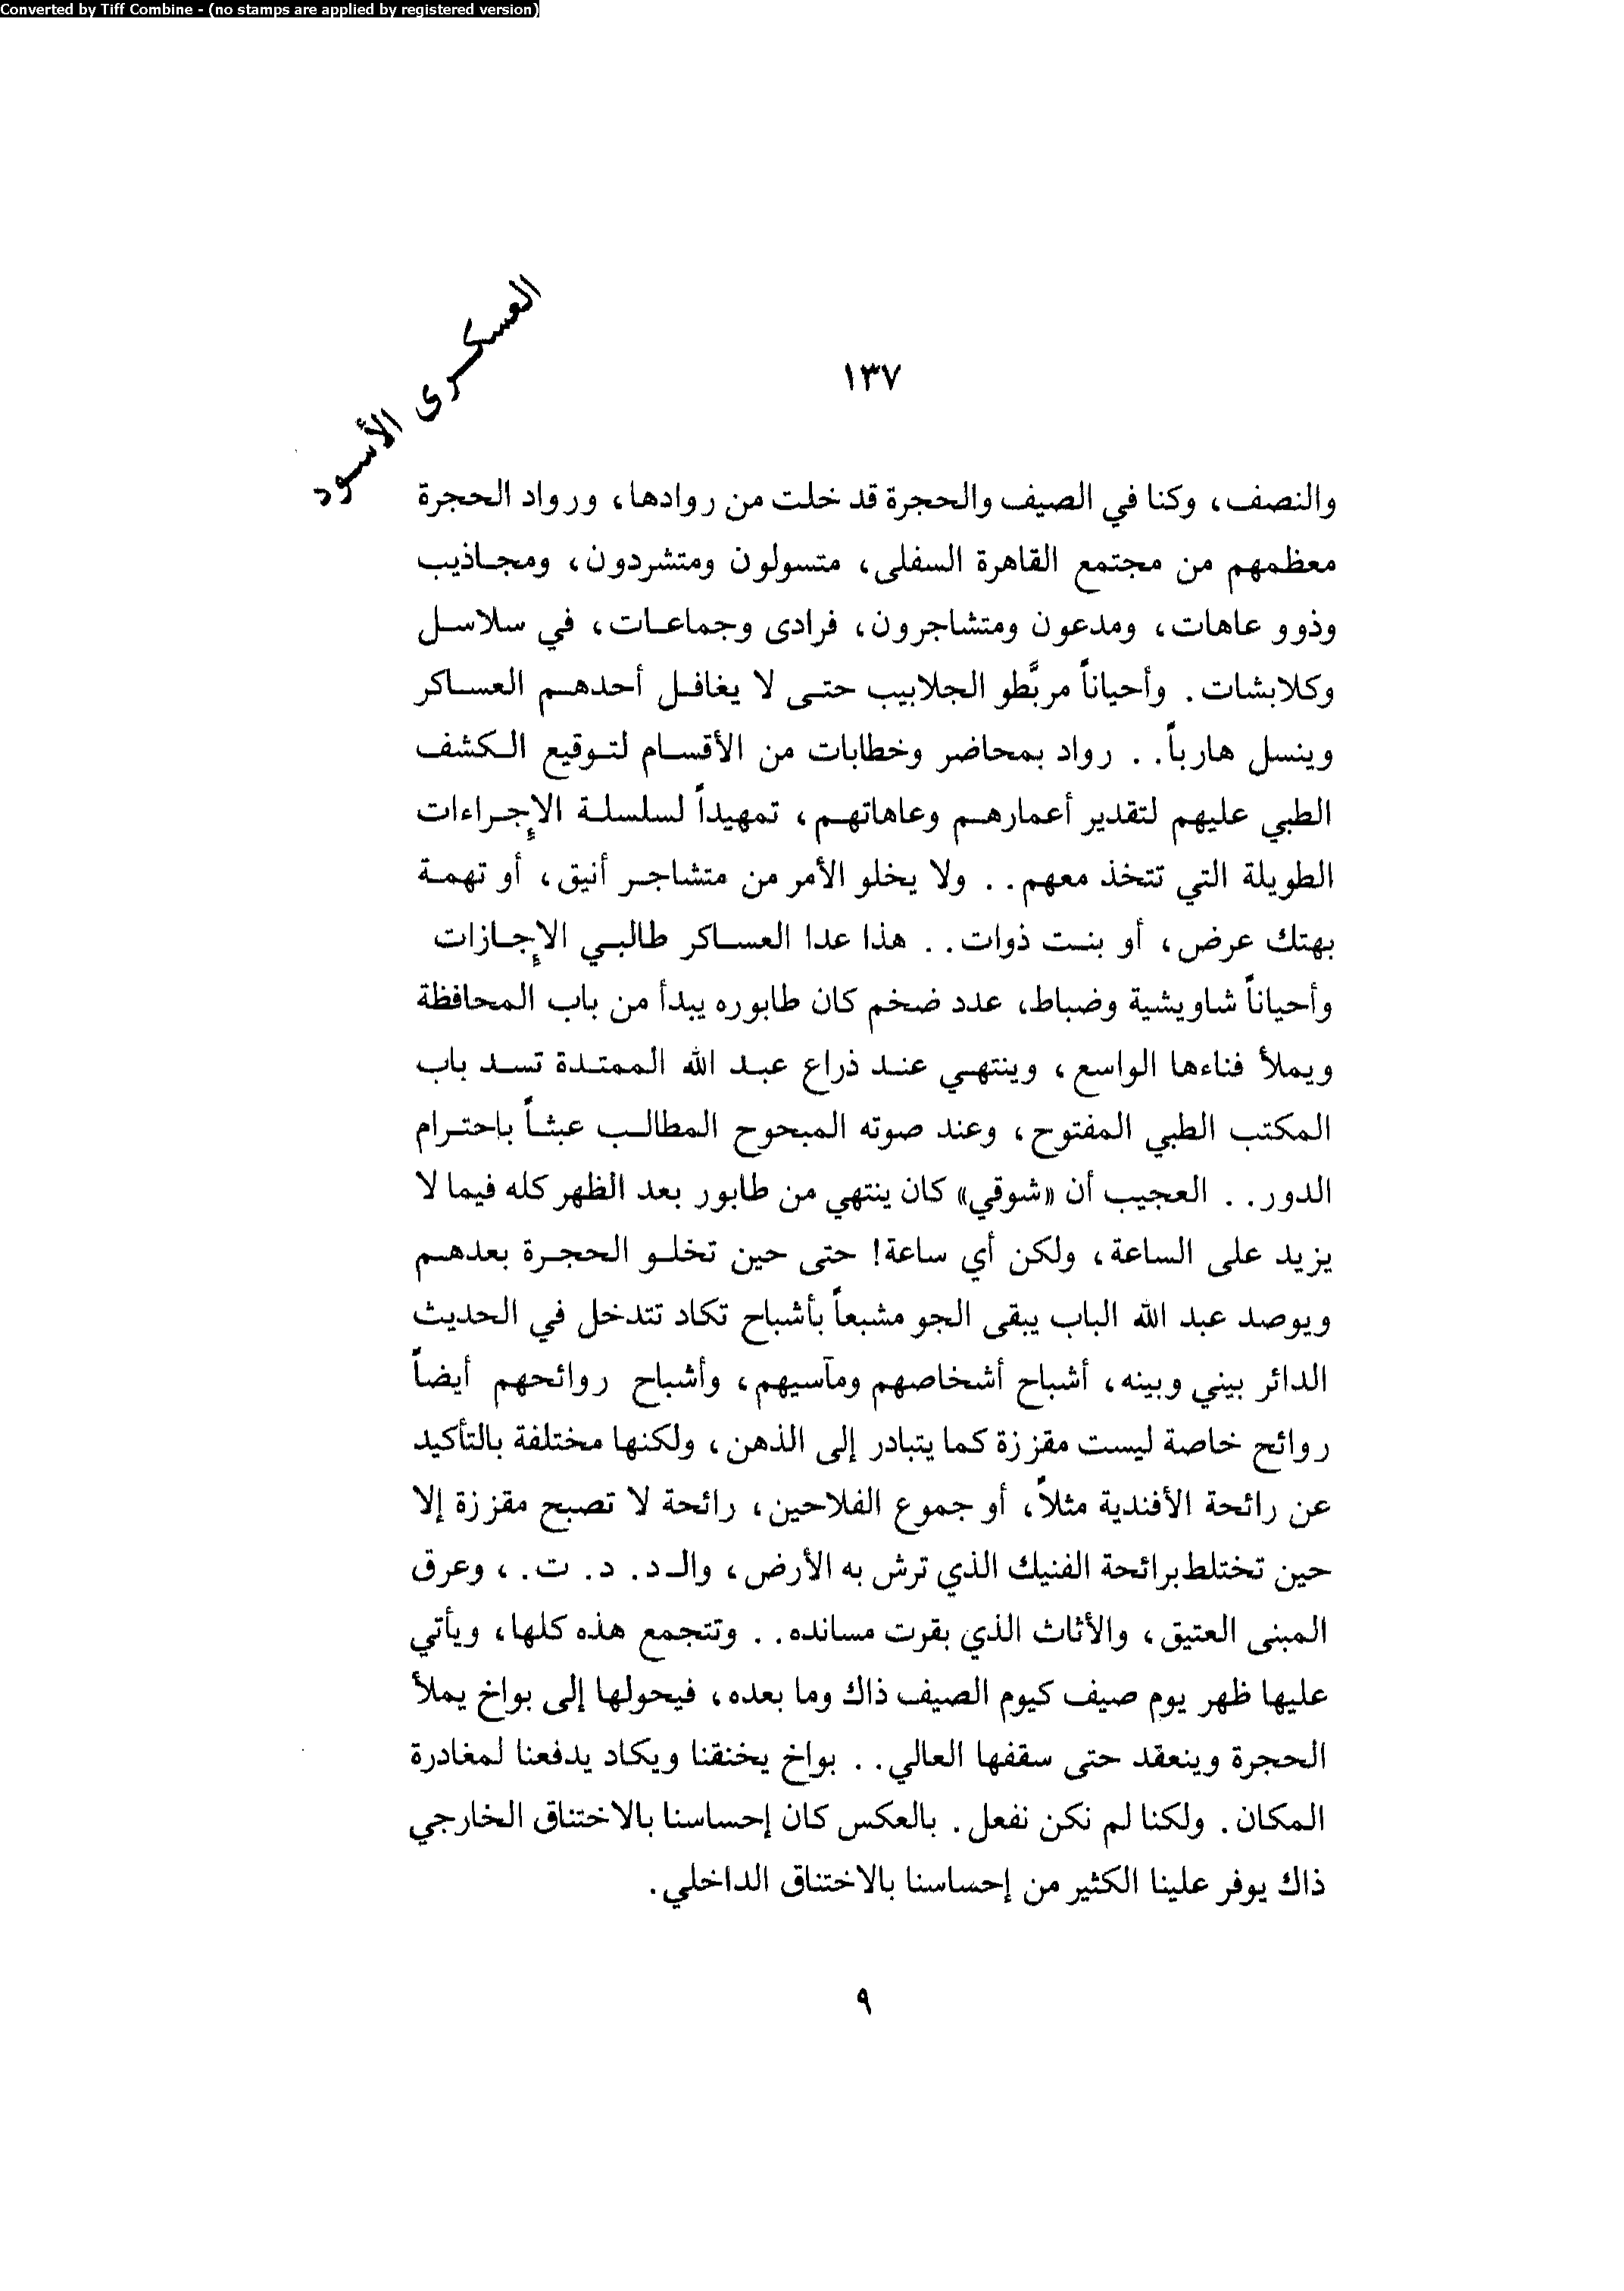 Converted by Tiff Combine - (no stamps are applied by registered version)
العسكرى الأسود
١٣٧
والنصف، وكنا في الصيف والحجرة قد خلت من روادها، ورواد الحجرة
معظمهم من مجتمع القاهرة السفلى، متسولون ومتشردون، ومجاذيب
وذوو عاهات، ومدعون ومتشاجرون، فرادى وجماعات، في سلاسل
وكلابشات. وأحياناً مربَّطو الجلابيب حتى لا يغافل أحدهم العساكر
وينسل هارباً.. رواد بمحاضر وخطابات من الأقسام لتوقيع الكشف
الطبي عليهم لتقدير أعمارهم وعاهاتهم، تمهيداً لسلسلة الإجراءات
الطويلة التي تتخذ معهم.. ولا يخلو الأمر من متشاجر أنيق، أو تهمة
بهتك عرض، أو بنت ذوات.. هذا عدا العساكر طالبي الإجازات
وأحياناً شاويشية وضباط، عدد ضخم كان طابوره يبدأ من باب المحافظة
ويملأ فناءها الواسع، وينتهي عند ذراع عبد الله الممتدة تسد باب
المكتب الطبي المفتوح، وعند صوته المبحوح المطالب عبثاً بإحترام
الدور.. العجيب أن «شوقي» كان ينتهي من طابور بعد الظهر كله فيما لا
يزيد على الساعة، ولكن أي ساعة! حتى حين تخلو الحجرة بعدهم
ويوصد عبد الله الباب يبقى الجو مشبعاً بأشباح تكاد تتدخل في الحديث
الدائر بيني وبينه، أشباح أشخاصهم ومآسيهم، وأشباح روائحهم أيضاً
روائح خاصة ليست مقززة كما يتبادر إلى الذهن، ولكنها مختلفة بالتأكيد
عن رائحة الأفندية مثلاً، أو جموع الفلاحين، رائحة لا تصبح مقززة إلا
حين تختلط برائحة الفنيك الذي ترش به الأرض، والـ د. د. ت.، وعرق
المبنى العتيق، والأثاث الذي بقرت مسانده.. وتتجمع هذه كلها، ويأتي
عليها ظهر يوم صيف كيوم الصيف ذاك وما بعده، فيحولها إلى بواخ يملأ
الحجرة وينعقد حتى سقفها العالي.. بواخ يخنقنا ويكاد يدفعنا لمغادرة
المكان. ولكنا لم نكن نفعل. بالعكس كان إحساسنا بالاختناق الخارجي
ذاك يوفر علينا الكثير من إحساسنا بالاختناق الداخلي.
٩